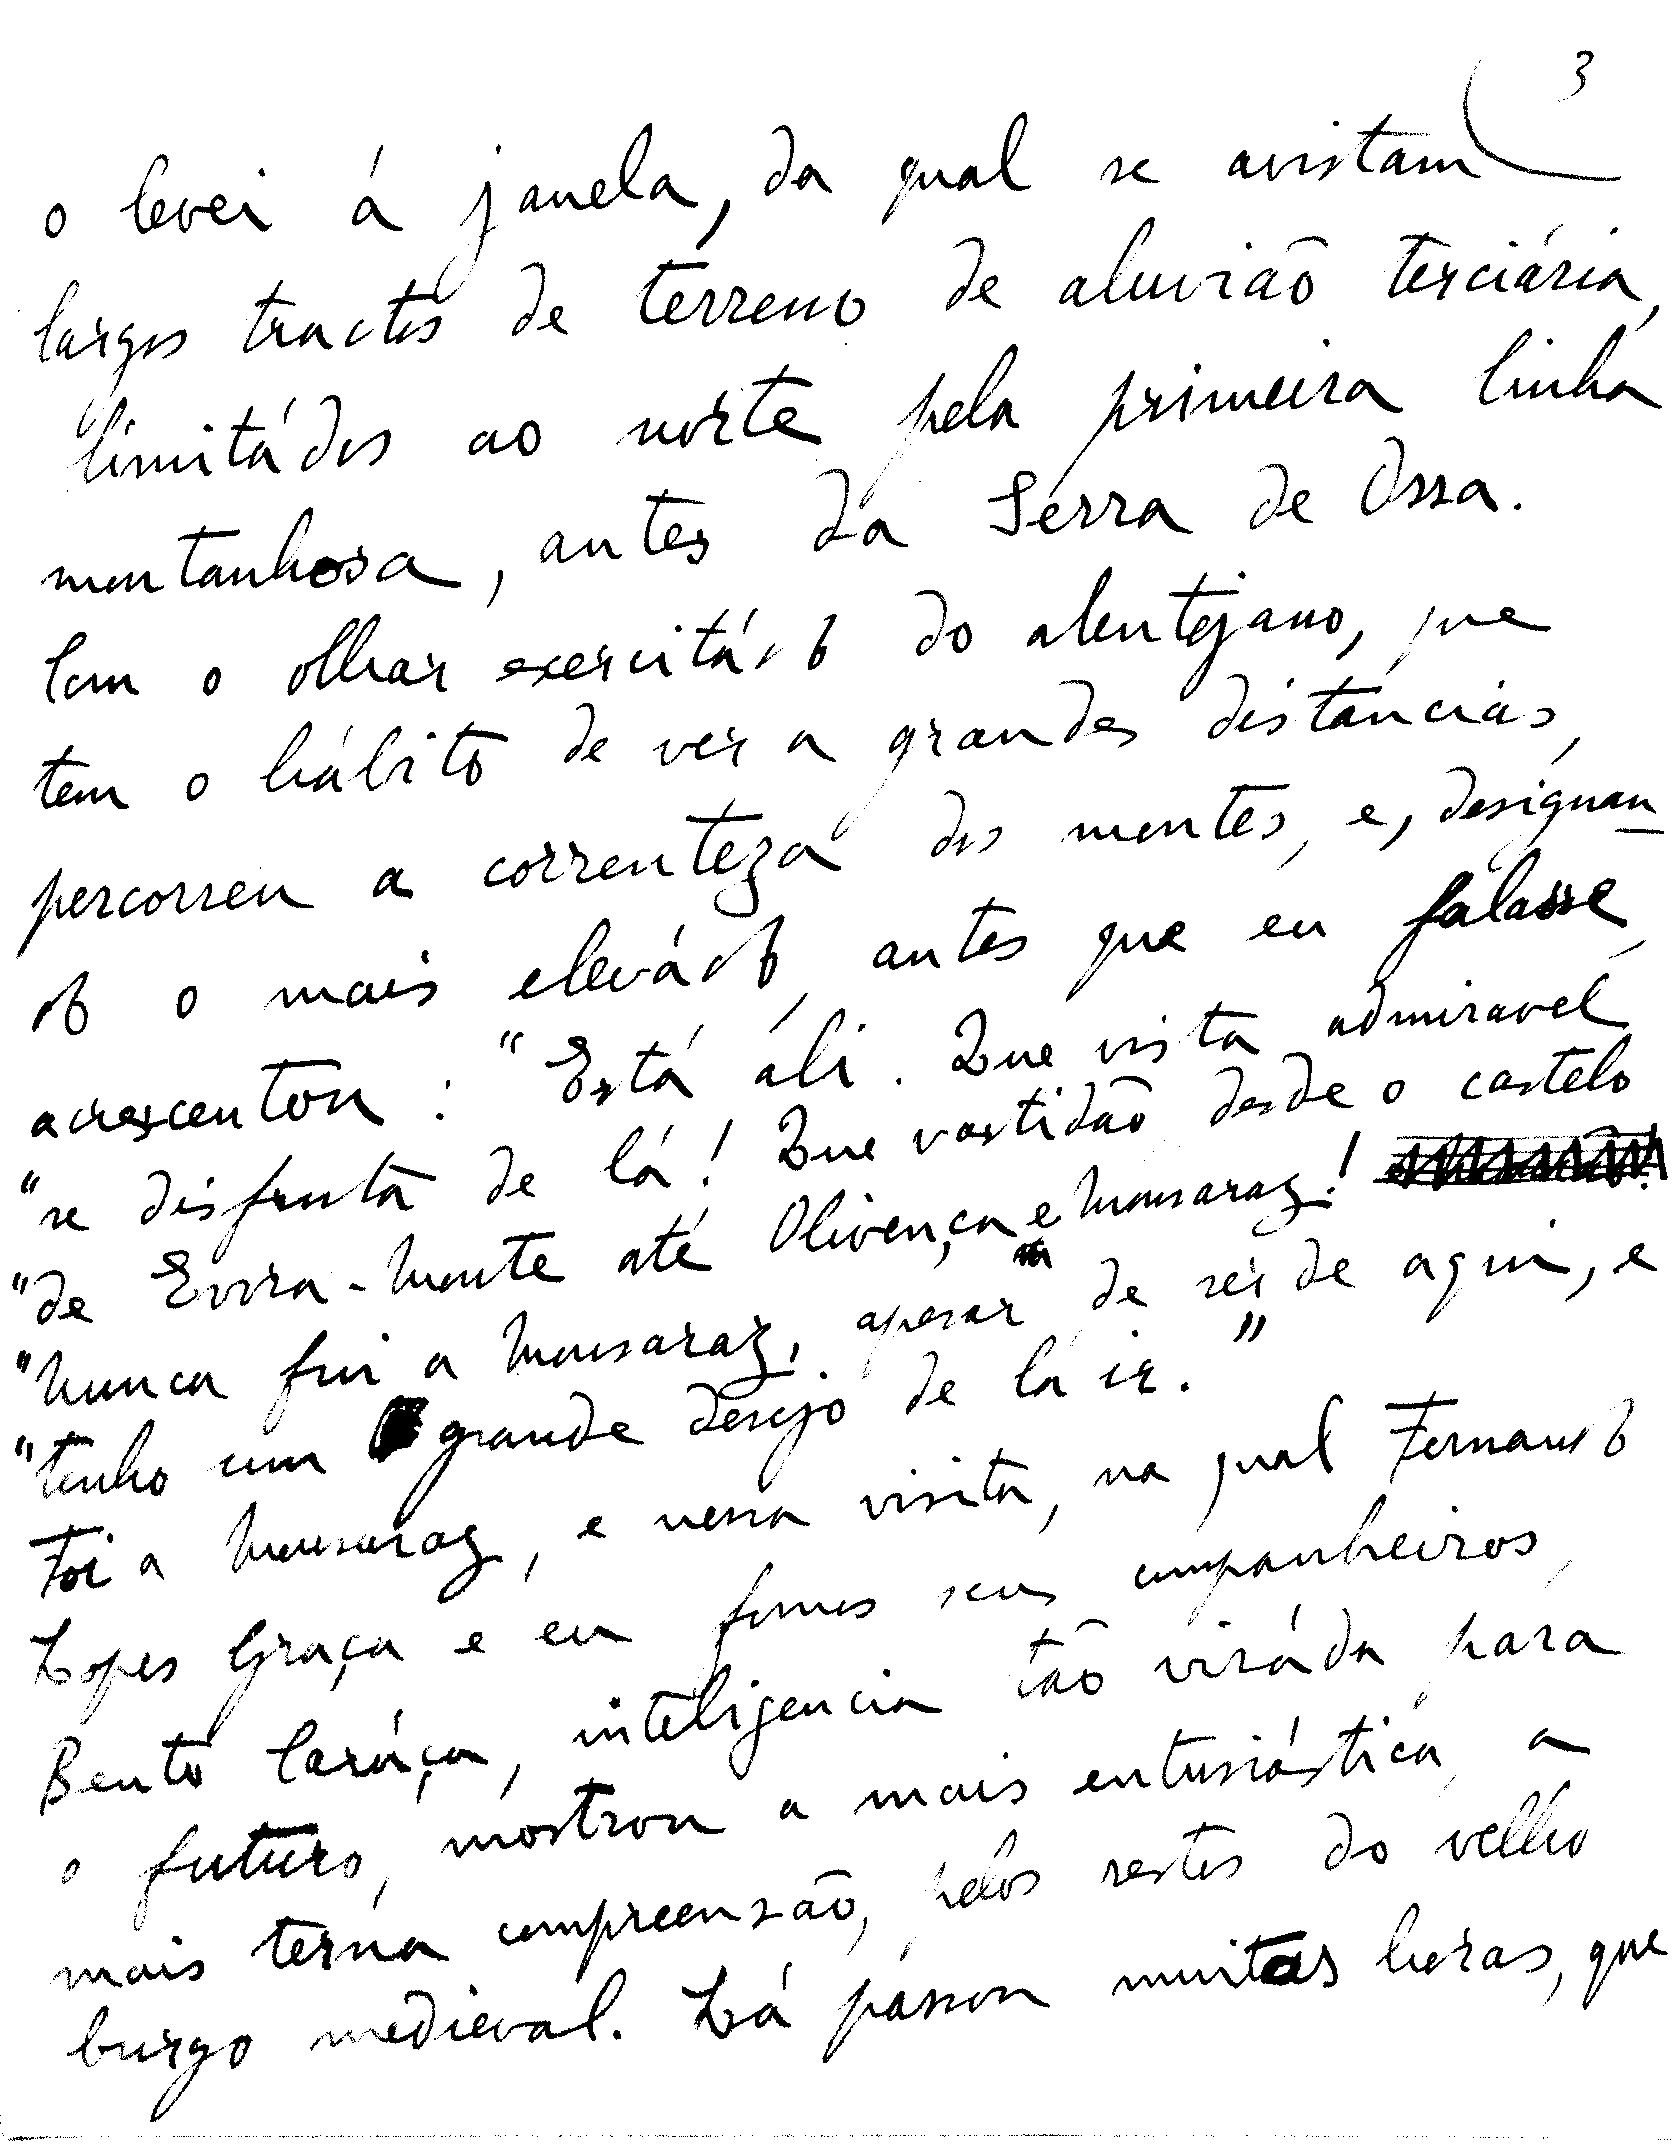 3
o levei á janela, da qual se avistam
largos tractos de terreno de aluvião terciária,
limitádos ao norte pela primeira linha
montanhosa, antes da Serra de Ossa.
Com o olhar exercitádo do alentejano, que
tem o hábito de ver a grandes distancias,
percorreu a correnteza dos montes, e, designan
do o mais elevádo, antes que eu falasse,
acrescentou : "Está áli. Que vista admiravel
"se disfruta de lá! Que vastidão desde o castelo
"de Evora-Monte até Olivença e Monsaraz!
"Nunca fui a Monsaraz, apesar de ser de aqui, e
"tenho um grande desejo de lá ir."
Foi a Monsaraz, e nessa visita, na qual Fernando
Lopes Graça e eu fomos seus companheiros,
Bento Caráça, inteligencia tão viráda para
o futuro, mostrou a mais entusiástica, a
mais terna compreensão, pelos restos do velho
burgo medieval. Lá passou muitas horas, que